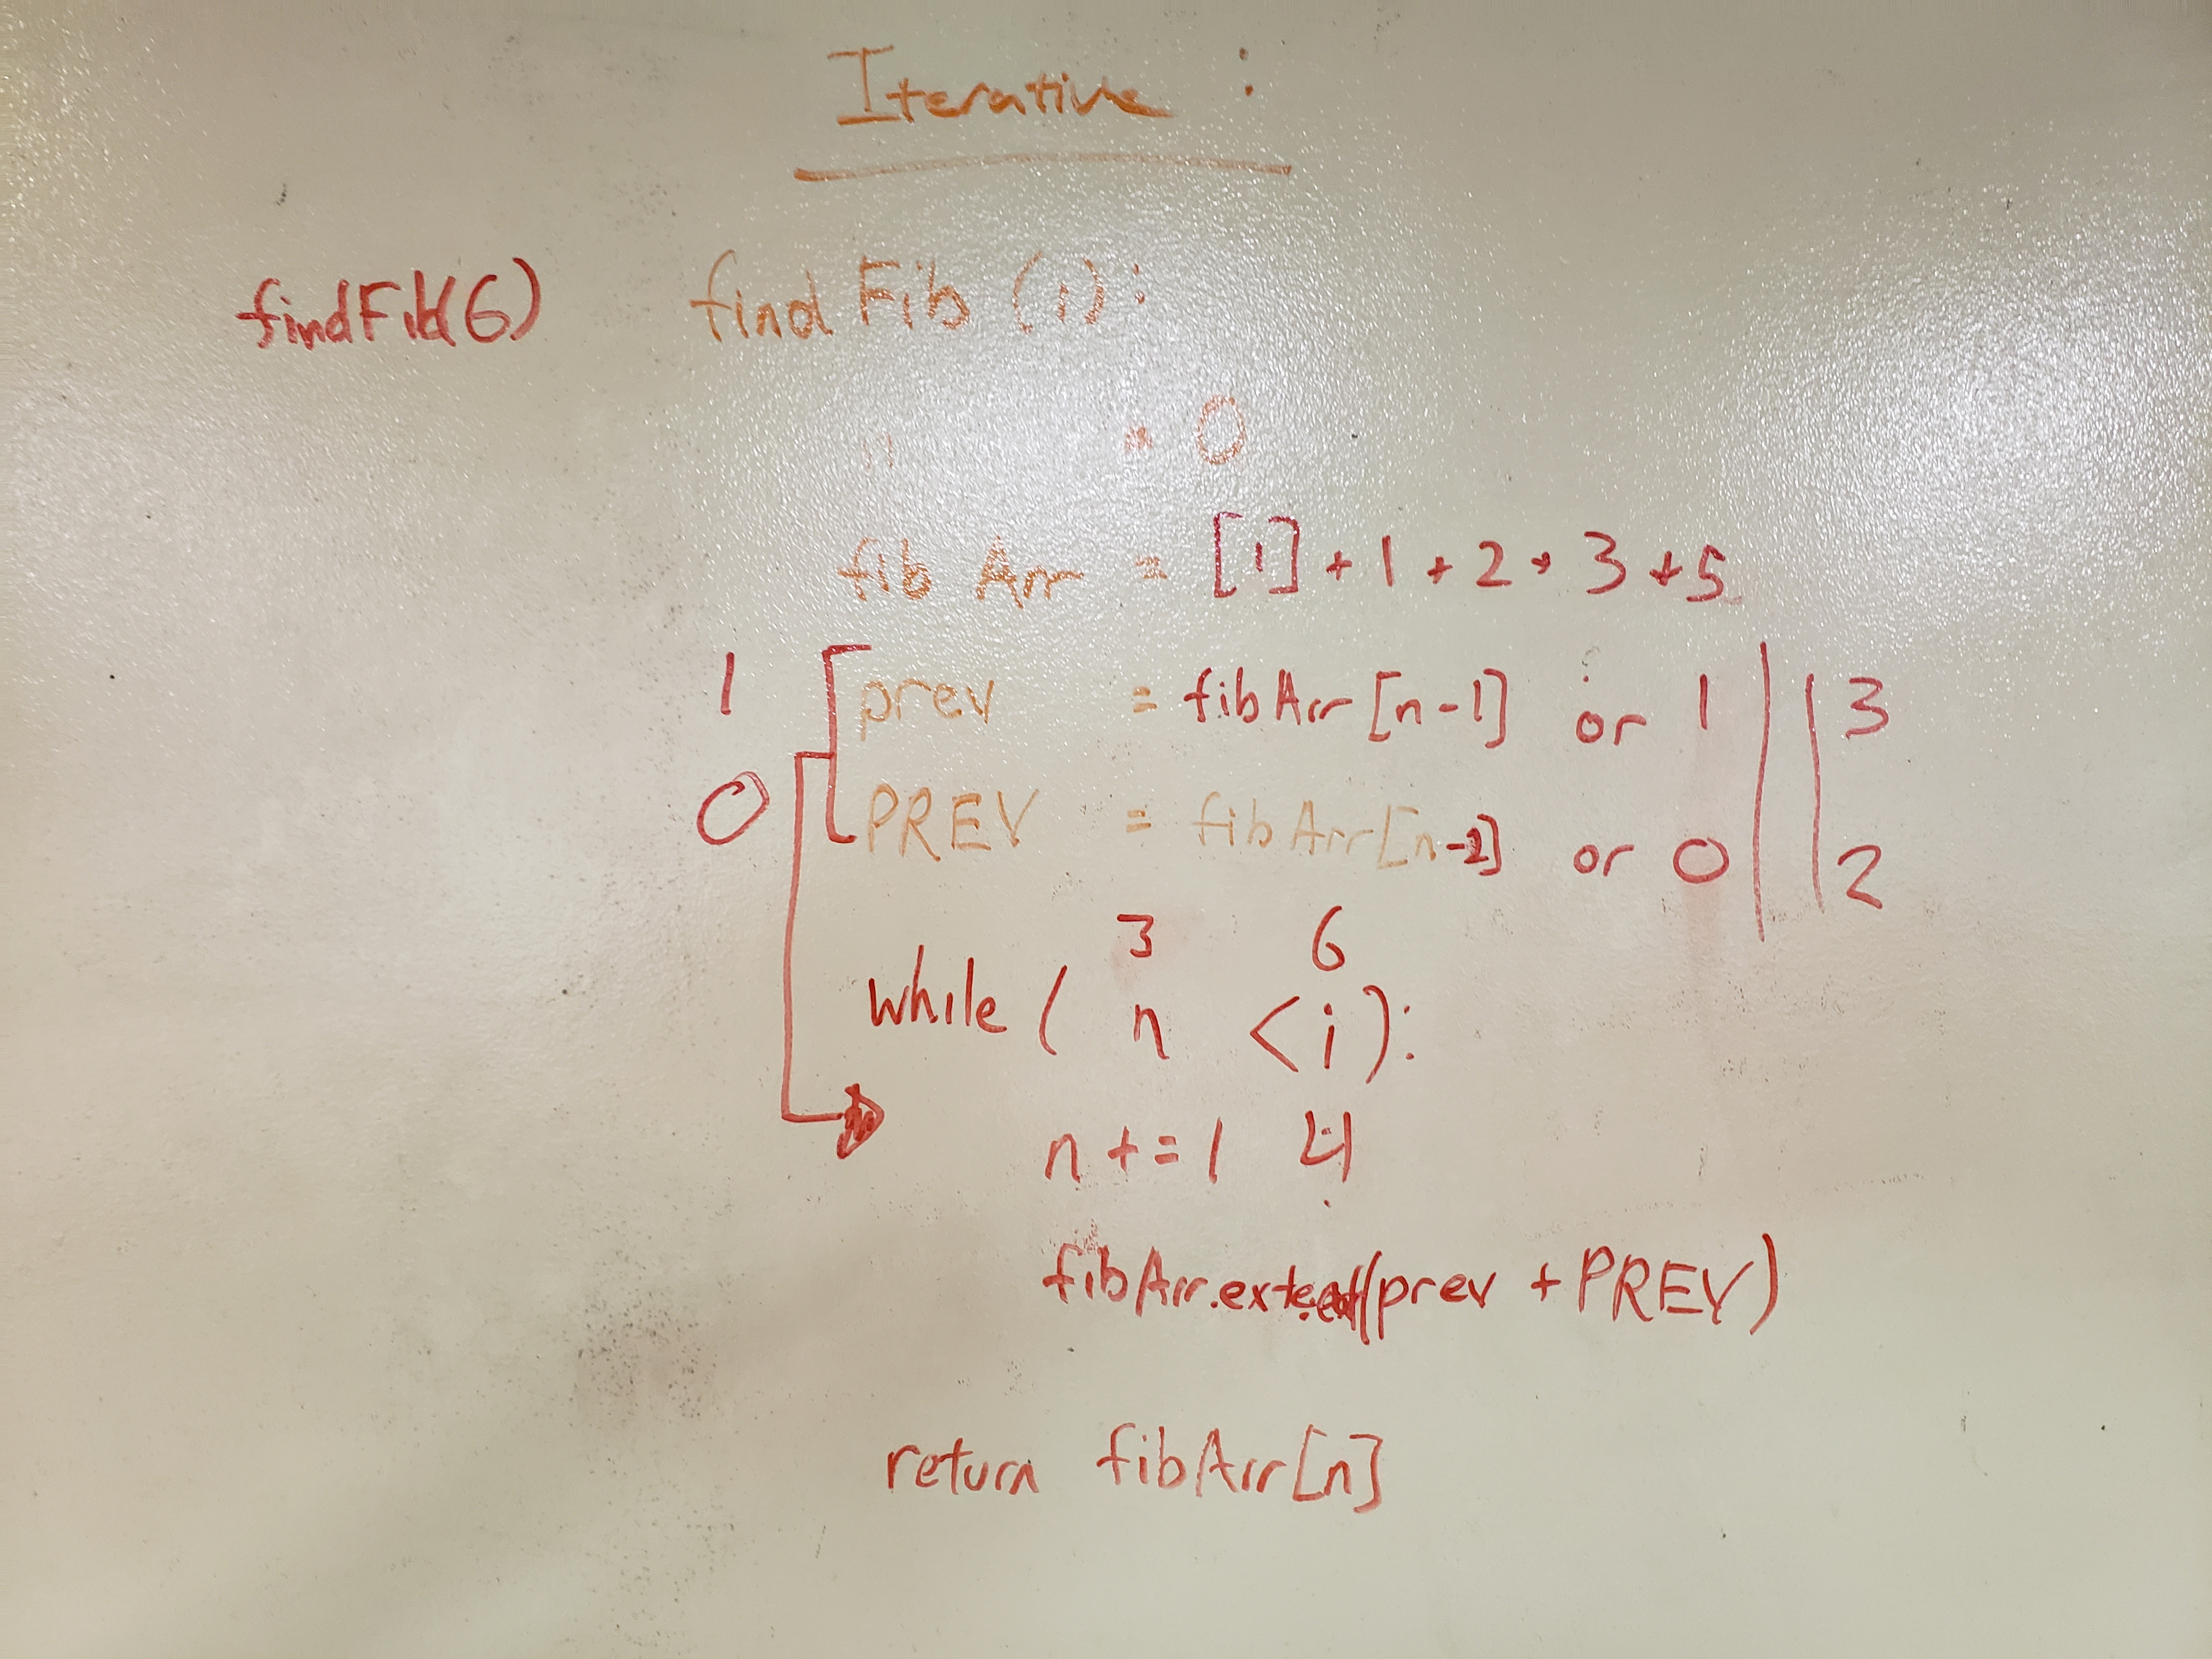 Iterative :
findFib(6) findFib (i):
n = 0
fib Arr = [1] + 1 + 2 + 3 + 5
1 prev = fibArr [n-1] or 1 | | 3
0 PREV = fibArr[n-2] or 0 | | 2
3 6
while ( n < i ):
n += 1 4
fibArr.extend(prev + PREV)
return fibArr[n]